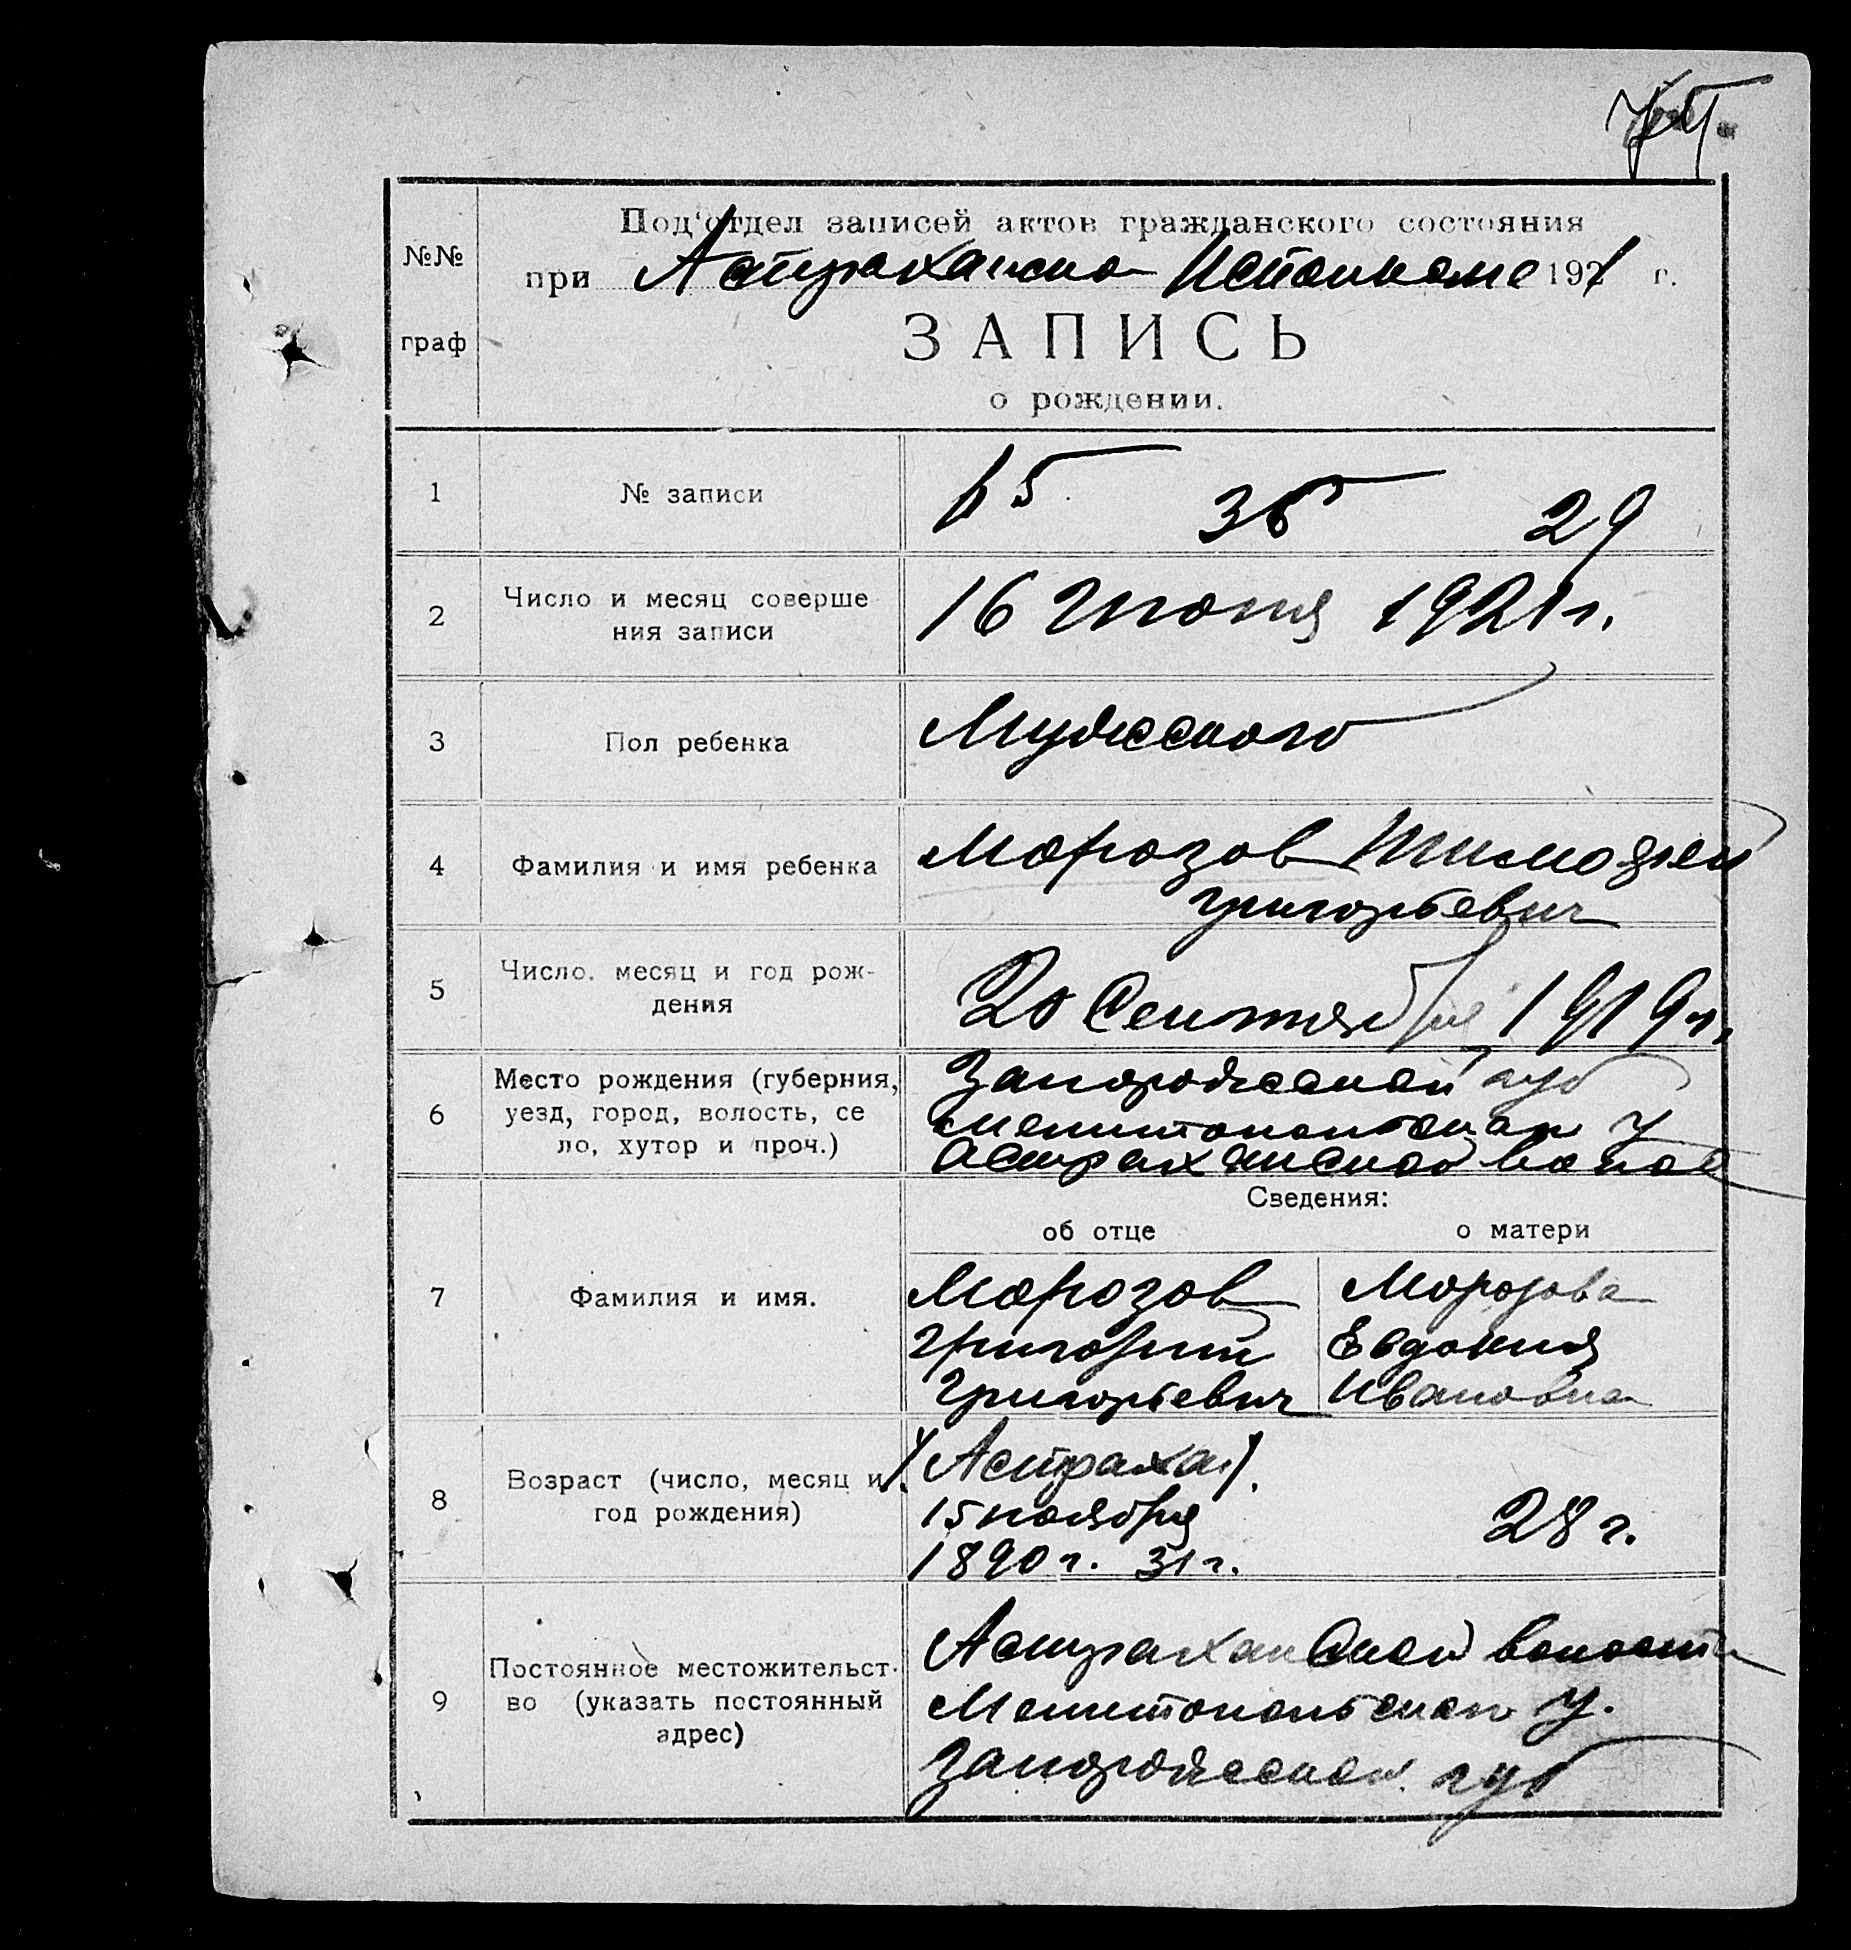 74
№№ граф
Под'отдел записей актов гражданского состояния
при Астраханско Исполкоме 1921 г.
ЗАПИСЬ
о рождении.
1 № записи 65 35 29
2 Число и месяц соверше
ния записи
16 Июня 1921 г.
3 Пол ребенка Мужеского
4 Фамилия и имя ребенка Морозов Тимофей
Григорьевич
5 Число, месяц и год рож-
дения
20 Сентября 1919 г.
6 Место рождения (губерния,
уезд, город, волость, се
ло, хутор и проч.)
Запорожеской губ
Мелитопольскаго у
Астраханской волос
Сведения:
об отце о матери
7 Фамилия и имя.
Морозов
Григорий
Григорьевич
Морозова
Евдокия
Ивановна
8 Возраст (число, месяц и
год рождения)
(Астрахан).
15 ноября
1890 г. 31 г.
28 г.
9 Постоянное местожительст-
во (указать постоянный
адрес)
Астраханской волости
Мелитопольскаго у.
Запорожеской губ